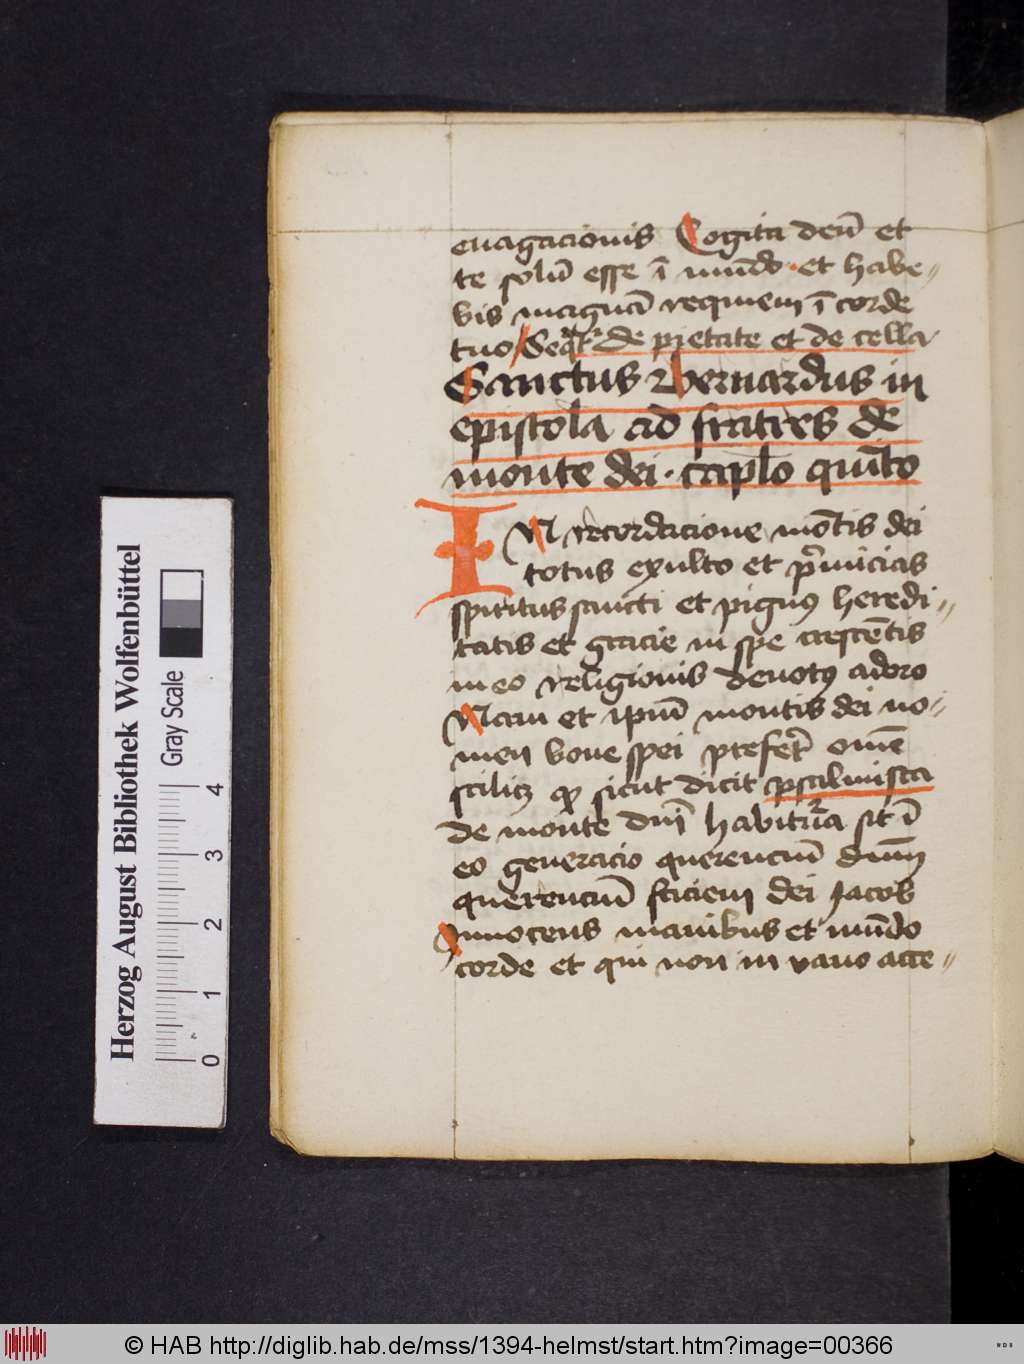 euagacionis Cogita deū et
te solū esse ī mūdo · et habe〃
bis magnā requiem ī corde
tuo / Seqr̄ de pietate et de cella ·
Sanctus Bernardus in
epistola ad fratres de
monte dei · caplo quīto
IN recordacione mōtis dei
totus exulto et p̄micias
spiritus sancti et pignꝰ heredi〃
tatis et gracie in spe crescētis
in eo religionis deuotꝰ adoro
Nam et ipm̄ montis dei no〃
men bone spei prefert omē
scilicꝫ ꝙ sicut dicit psalmista
de monte dnī habitura sit ī
eo generacio querenciū dnm̄
querenciū faciem dei Jacob
Innocens manibus et mūdo
corde et qui non in vano acce〃
Herzog August Bibliothek Wolfenbüttel
Gray Scale
0 1 2 3 4
© HAB http://diglib.hab.de/mss/1394-helmst/start.htm?image=00366